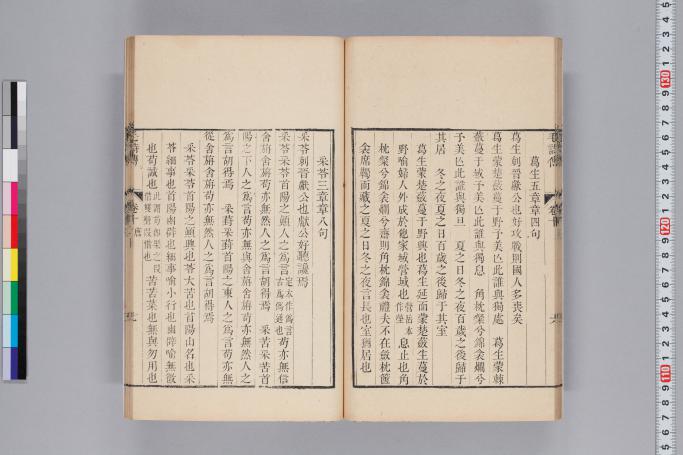 葛生五章章四句
葛生刺晉獻公也好攻戰則國人多喪矣
葛生蒙楚蘞蔓于野予美亾此誰與獨處　葛生蒙棘
蘞蔓于域予美亾此誰與獨息　角枕粲兮錦衾爛兮
予美亾此誰與獨旦　夏之日冬之夜百歲之後歸于
其居　冬之夜夏之日百歲之後歸于其室
葛生蒙楚蘞蔓于野興也葛生延而蒙楚蘞生蔓於
野喻婦人外成於他家域營域也營岳本作塋息止也角
枕粲兮錦衾爛兮齋則角枕錦衾禮夫不在斂枕篋
衾席韣而藏之夏之日冬之夜言長也室猶居也
采苓三章章八句
采苓刺晉獻公也獻公好聽讒焉
采苓采苓首陽之顛人之爲言定本作爲言古爲僞通也苟亦無信
舍旃舍旃苟亦無然人之爲言胡得焉　采苦采苦首
陽之下人之爲言苟亦無與舍旃舍旃苟亦無然人之
爲言胡得焉　采葑采葑首陽之東人之爲言苟亦無
從舍旃舍旃苟亦無然人之爲言胡得焉
采苓采苓首陽之顛興也苓大苦也首陽山名也采
苓細事也首陽幽辟也細事喻小行也幽辟喻無徵
也苟誠也此謂苟即果之叚借雙聲叚借也苦苦菜也無與勿用也